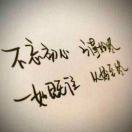 不忘初心 方得始终
一如既往 从始至终